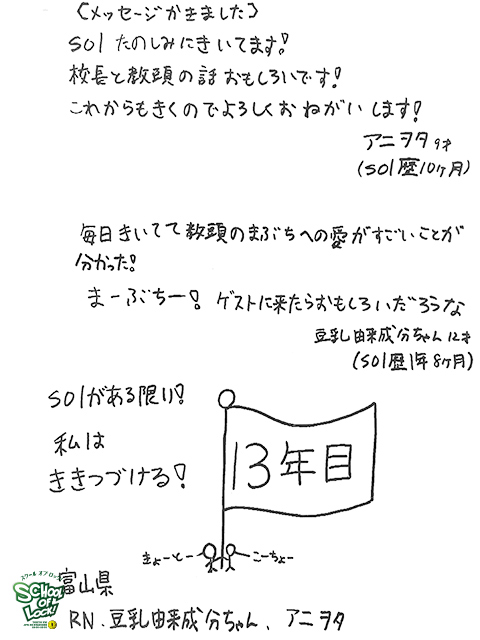 〔メッセージかきました〕
SOlたのしみにきいてます!
校長と教頭の話おもしろいです!
これからもきくのでよろしくおねがいします!
アニヲタ9才
(SOl歴10ヶ月)
毎日きいてて教頭のまぶちへの愛がすごいことが
分かった!
まーぶちー! ゲストに来たらおもしろいだろうな
豆乳由来成分ちゃん12才
(SOl歴1年8ヶ月)
SOlがある限り!
私は
ききつづける!
13年目
きょーとー
こーちょー
スクールオブロック
SCHOOL OF LOCK!
富山県
RN.豆乳由来成分ちゃん、アニヲタ